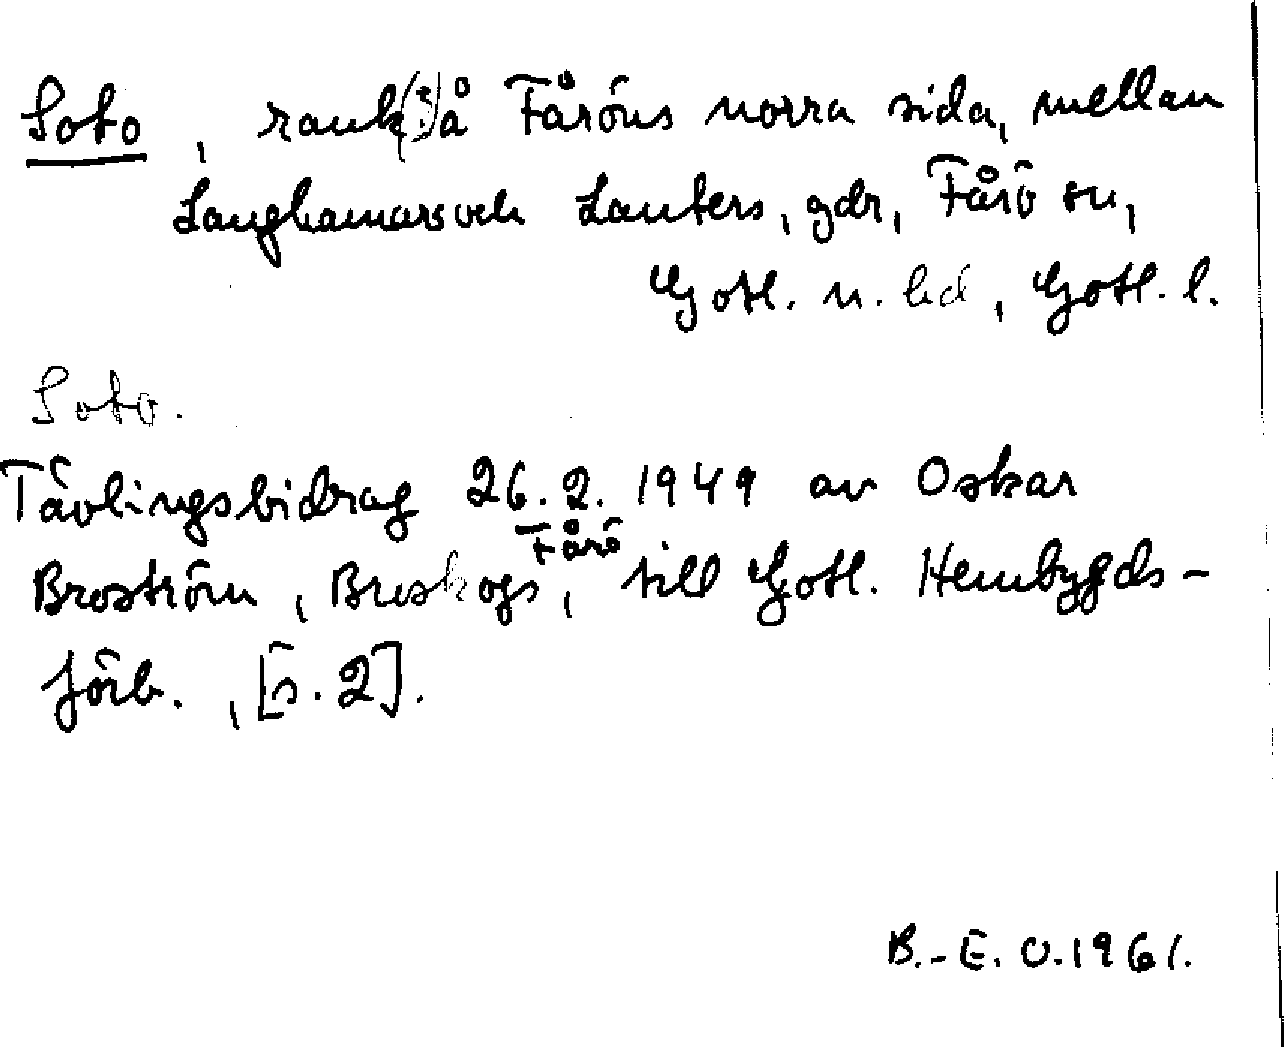 Soto, rauk(?) å Fåröns norra sida, mellan
Langhamars och Lauters, gdr, Fårö sn,
Gotl. n. hd, Gotl. l.
Soto.
Tävlingsbidrag 26.2.1949 av Oskar
Broström, Broskogs, Fårö, till Gotl. Hembygds-
förb., [s. 2].
B.-E. O. 1961.